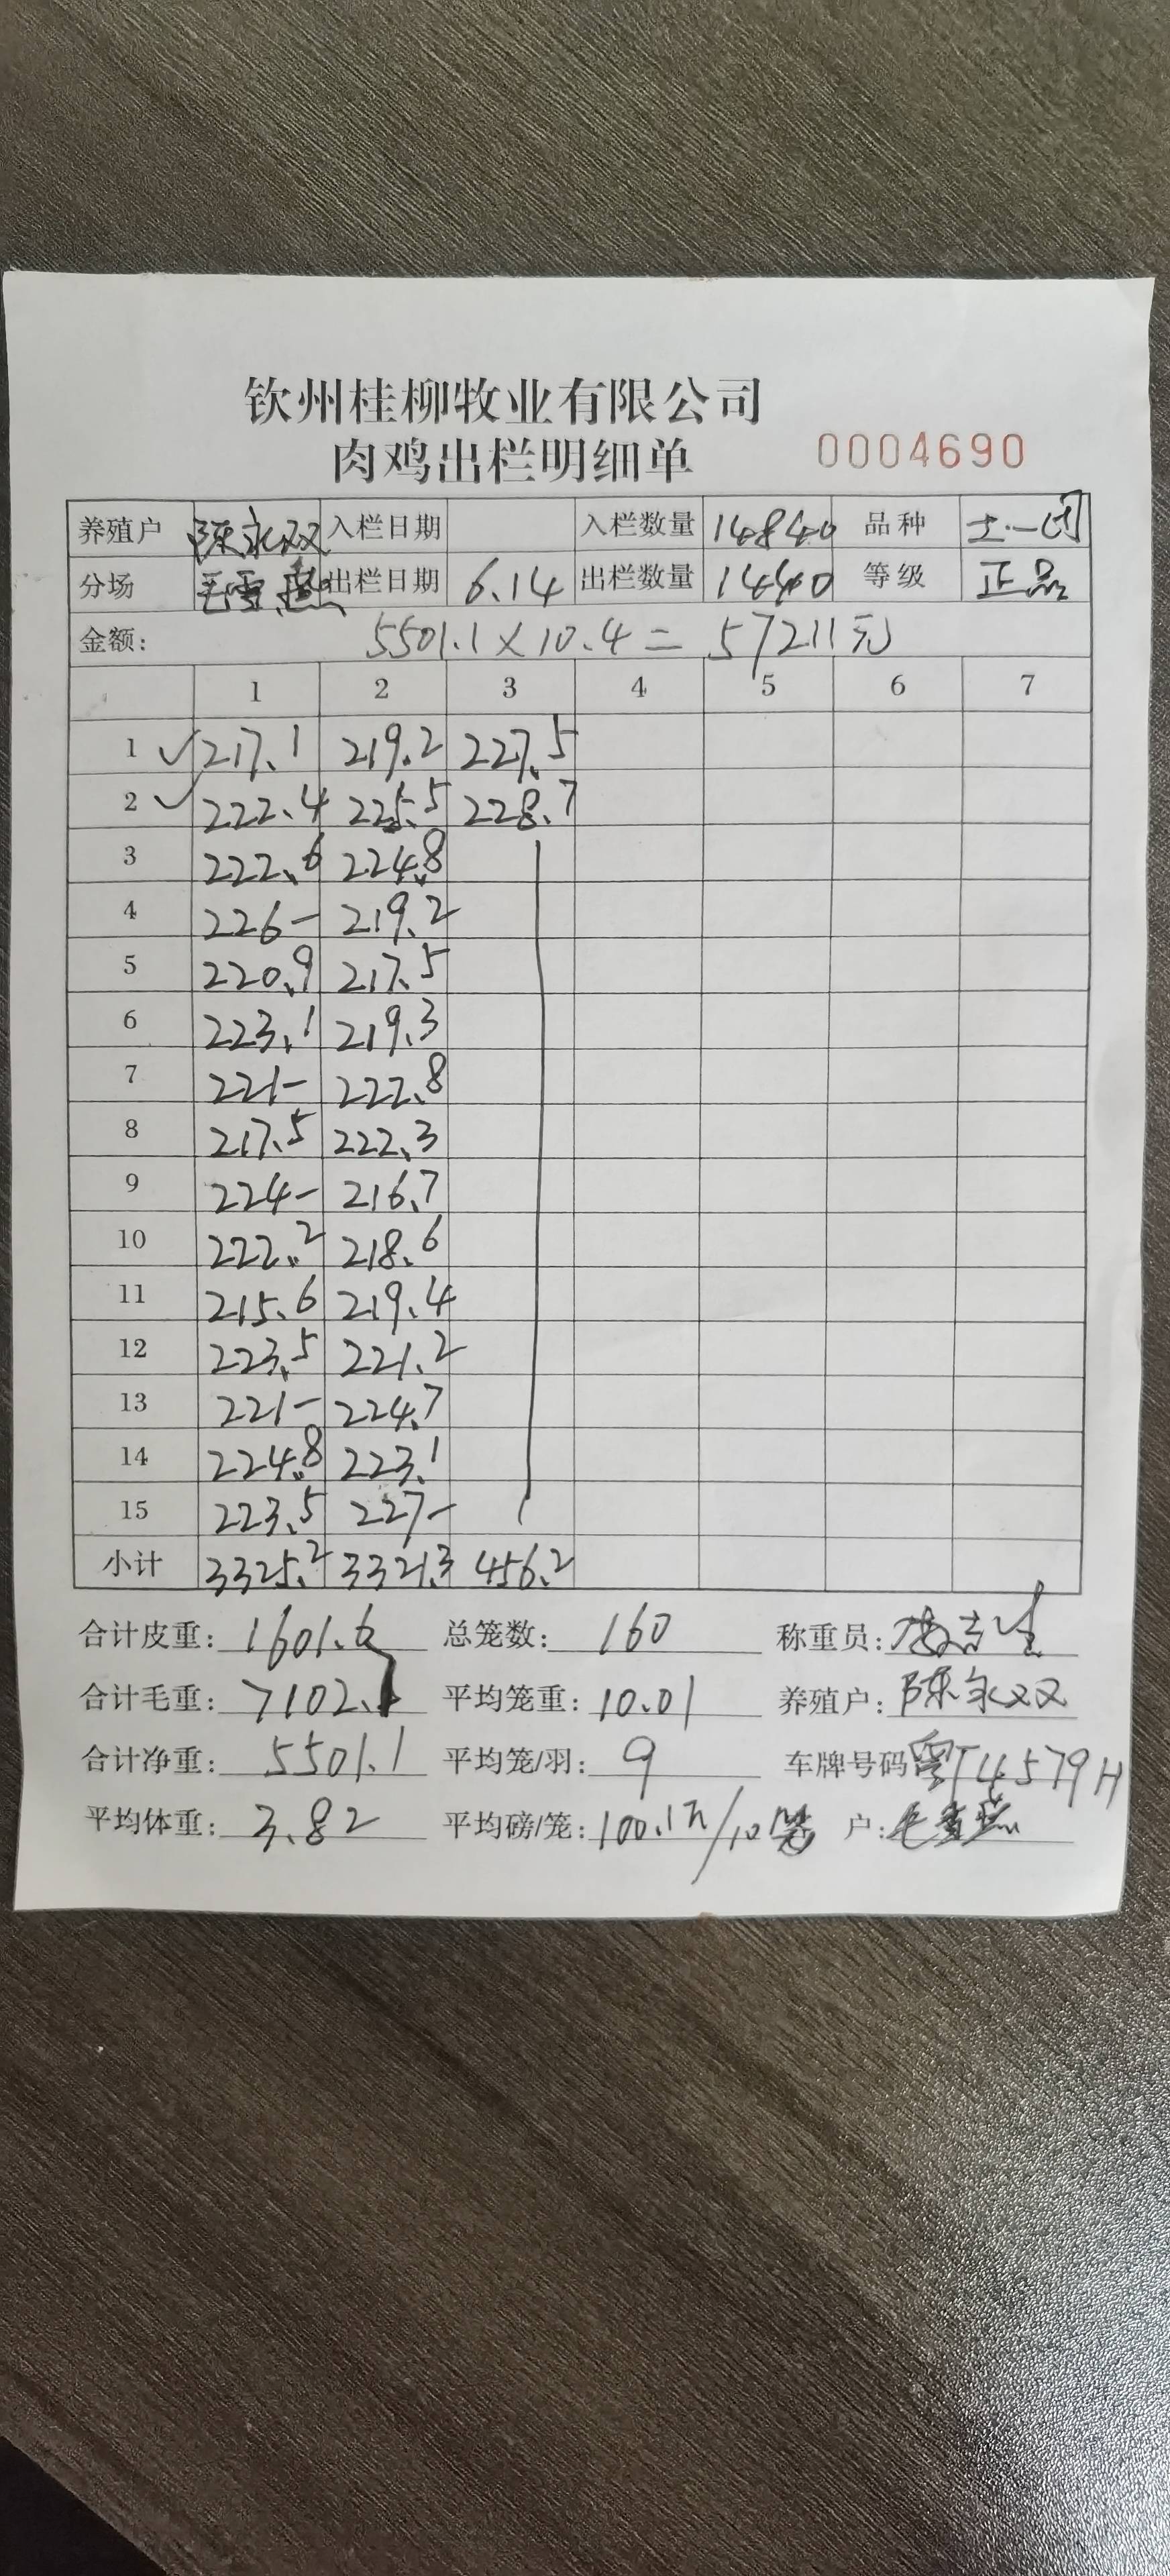 钦州桂柳牧业有限公司
肉鸡出栏明细单 0004690
养殖户 陈永双 入栏日期 入栏数量 14840 品种 土一
分场 毛雪燕 出栏日期 6.14 出栏数量 1440 等级 正品
金额: 5501.1×10.4=57211元
1 2 3 4 5 6 7
1 ✓ 217.1 219.2 227.5
2 ✓ 222.4 225.5 228.7
3 222.6 224.8
4 226- 219.2
5 220.9 217.5
6 223.1 219.3
7 221- 222.8
8 217.5 222.3
9 224- 216.7
10 222.2 218.6
11 215.6 219.4
12 223.5 221.2
13 221- 224.7
14 224.8 223.1
15 223.5 227-
小计 3325.2 3321.3 456.2
合计皮重: 1601.6 总笼数: 160 称重员:
合计毛重: 7102.7 平均笼重: 10.01 养殖户: 陈永双
合计净重: 5501.1 平均笼/羽: 9 车牌号码 粤T4579H
平均体重: 3.82 平均磅/笼: 100.1斤/10笼 户: 毛雪燕